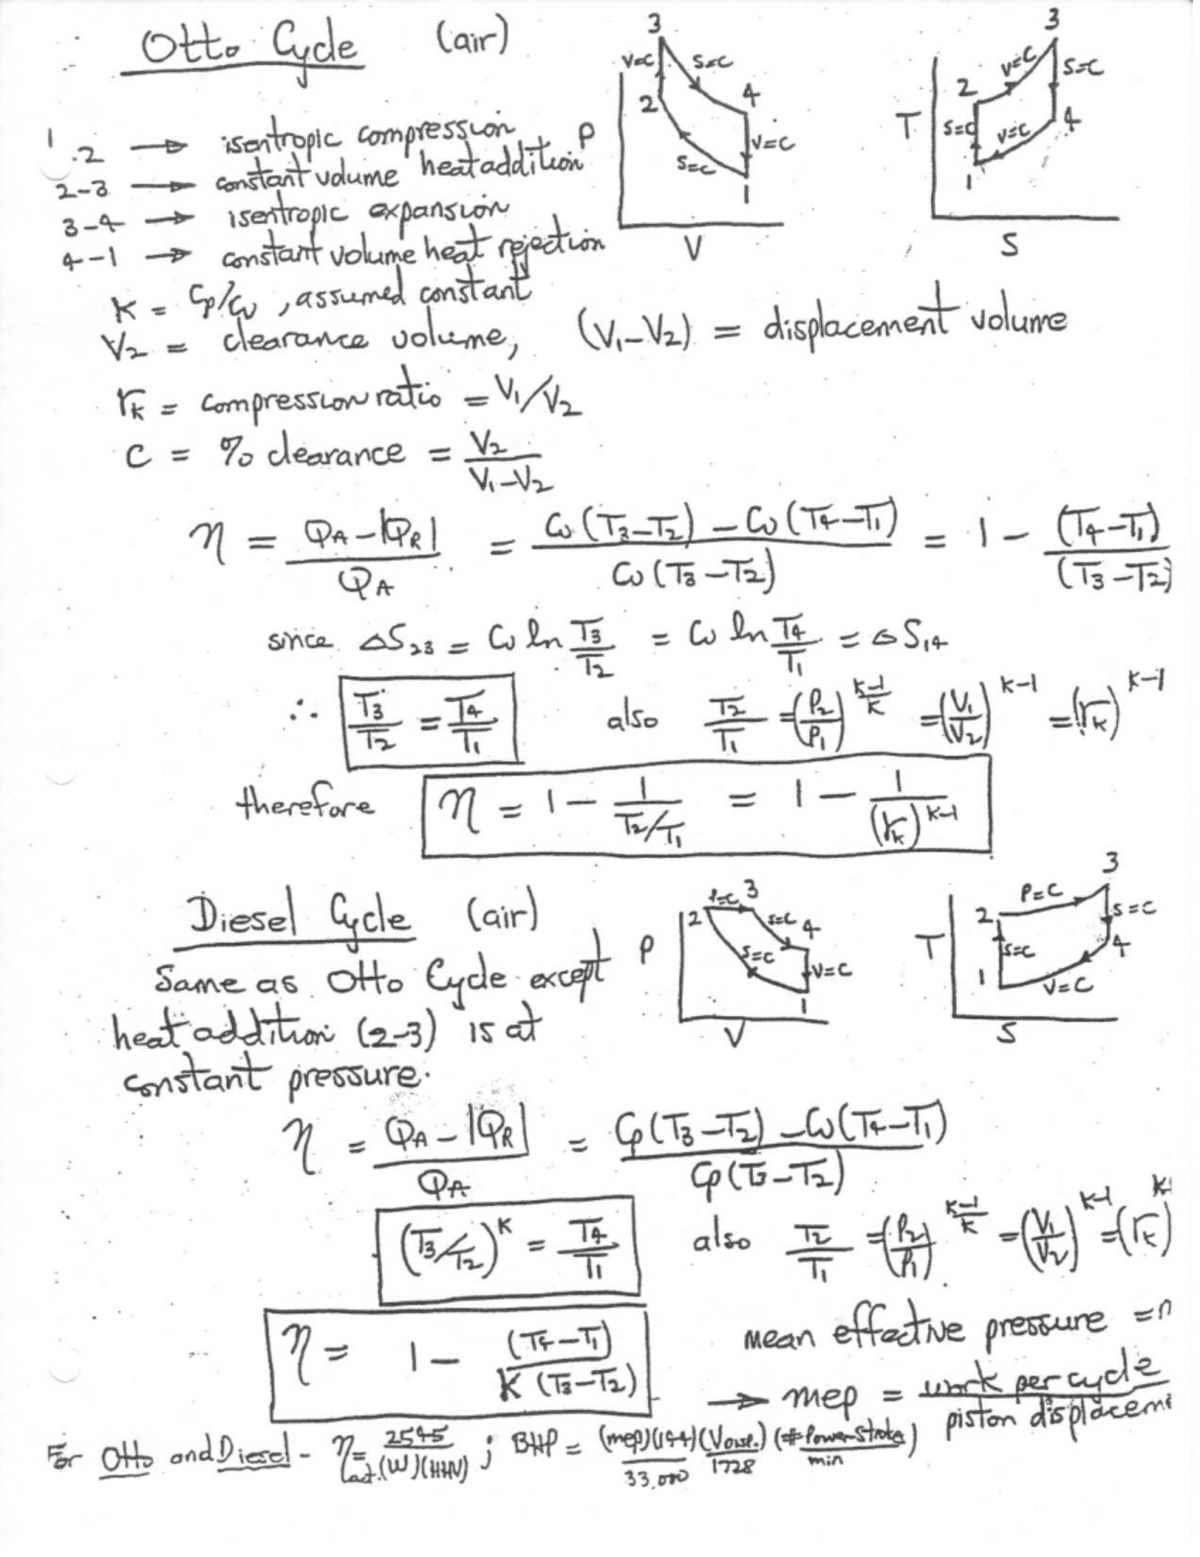 Otto Cycle (air)
1-2 → isentropic compression
2-3 → constant volume heat addition
3-4 → isentropic expansion
4-1 → constant volume heat rejection
P V 1 2 3 4 V=C S=C V=C S=C
T S 1 2 3 4 S=C V=C S=C V=C
K = Cp/Cv, assumed constant
V2 = clearance volume, (V1-V2) = displacement volume
rk = compression ratio = V1/V2
C = % clearance = V2/(V1-V2)
η = (QA - |QR|)/QA = (Cv(T3-T2) - Cv(T4-T1))/(Cv(T3-T2)) = 1 - (T4-T1)/(T3-T2)
since ΔS23 = Cv ln T3/T2 = Cv ln T4/T1 = ΔS14
∴ T3/T2 = T4/T1 also T2/T1 = (P2/P1)^((K-1)/K) = (V1/V2)^(K-1) = (rk)^(K-1)
therefore η = 1 - 1/(T2/T1) = 1 - 1/(rk)^(K-1)
Diesel Cycle (air)
Same as Otto Cycle except
heat addition (2-3) is at
constant pressure.
P V 1 2 3 4 P=C S=C S=C V=C
T S 1 2 3 4 P=C S=C S=C V=C
η = (QA - |QR|)/QA = (Cp(T3-T2) - Cv(T4-T1))/(Cp(T3-T2))
(T3/T2)^K = T4/T1 also T2/T1 = (P2/P1)^((K-1)/K) = (V1/V2)^(K-1) = (rk)^K
η = 1 - (T4-T1)/(K(T3-T2))
mean effective pressure =
→ mep = work per cycle / piston displacem
For Otto and Diesel - η = 2545/((W)(HHV)) ; BHP = (mep)(144)/33,000 (VDISP.)/1728 (# Power Strokes)/min